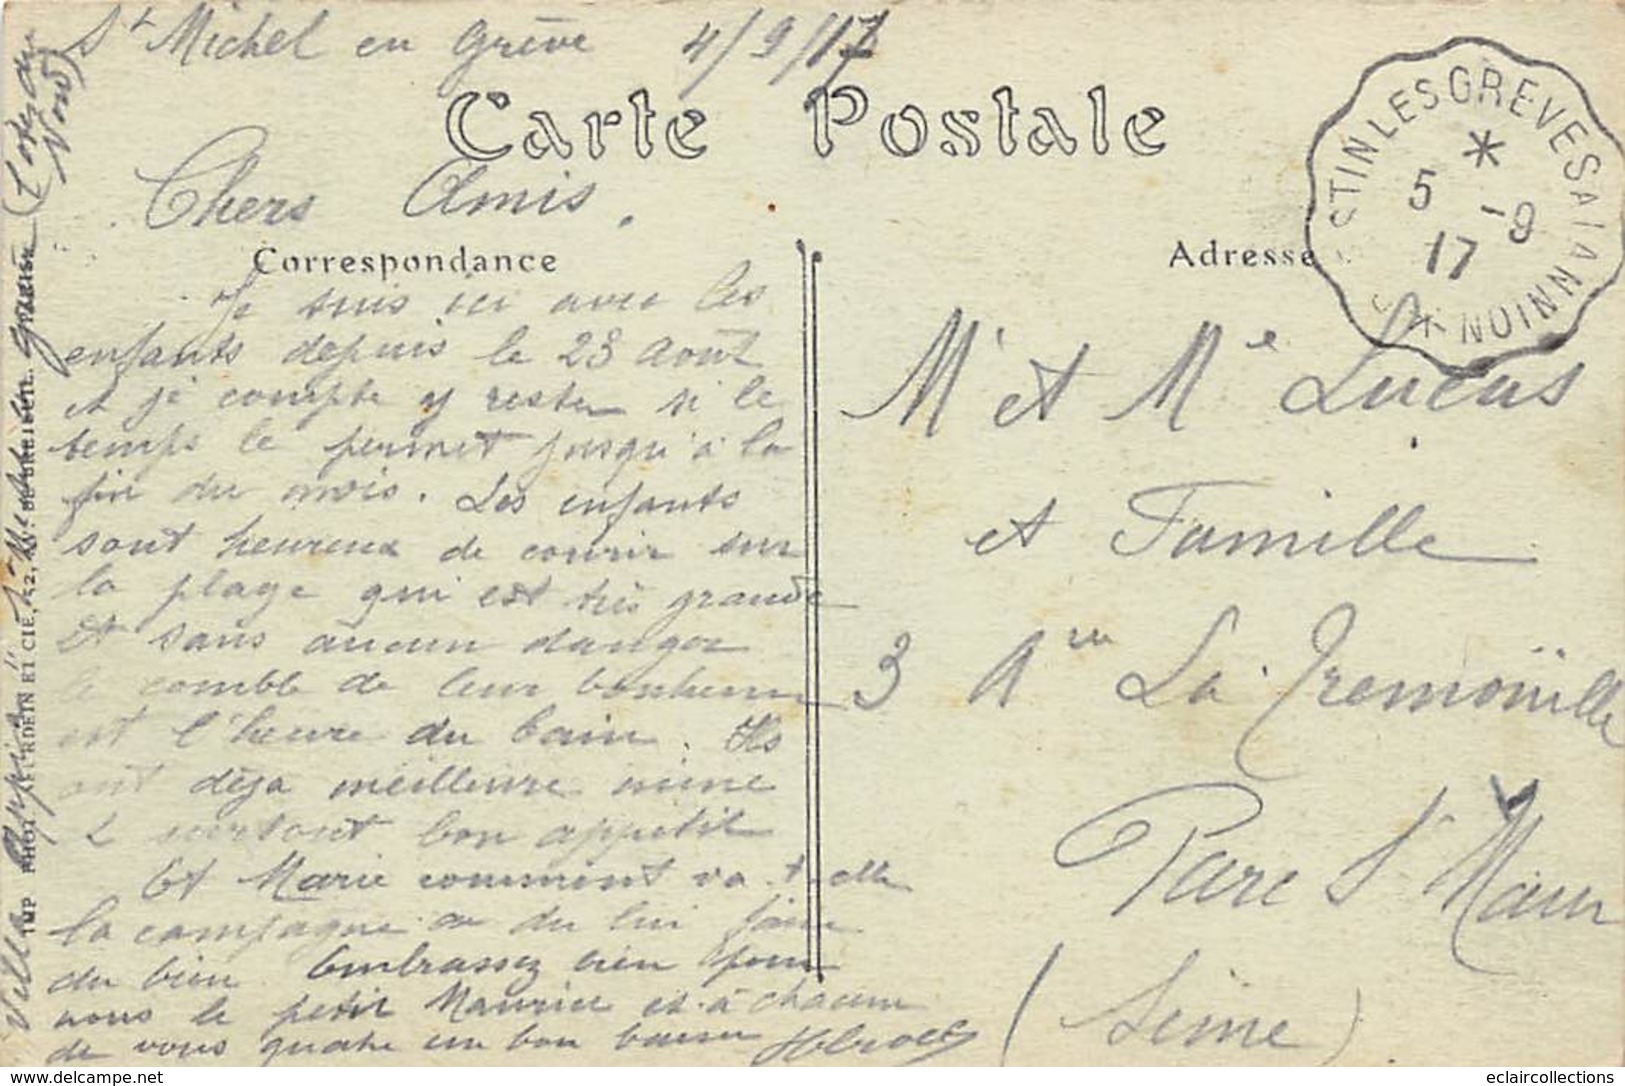 St Michel en Grève 4/9/17
Carte Postale
Chers Amis.
Correspondance
Je suis ici avec les
enfants depuis le 28 Aout
et je compte y rester si le
temps le permet jusqu'à la
fin du mois. Les enfants
sont heureux de courir sur
la plage qui est très grande
et sans aucun danger
le comble de leur bonheur
est l'heure du bain. Ils
ont déja meilleure mine
& surtout bon appetit
Et Marie comment va-t-elle
la campagne a du lui faire
du bien. Embrassez bien pour
nous le petit Maurice et à chacun
de vous quatre un bon baiser
Adresse
ST IN LES GREVES A LANNION
5 -9
17
Mr et Me Lucas
et Famille
3 Aue La Tremouïlle
Parc St Maur
(Seine)
Villa St Michel en Grève (Cotes du Nord)
IMP PHOT ET CIE, 52, AV.
eclaircollections